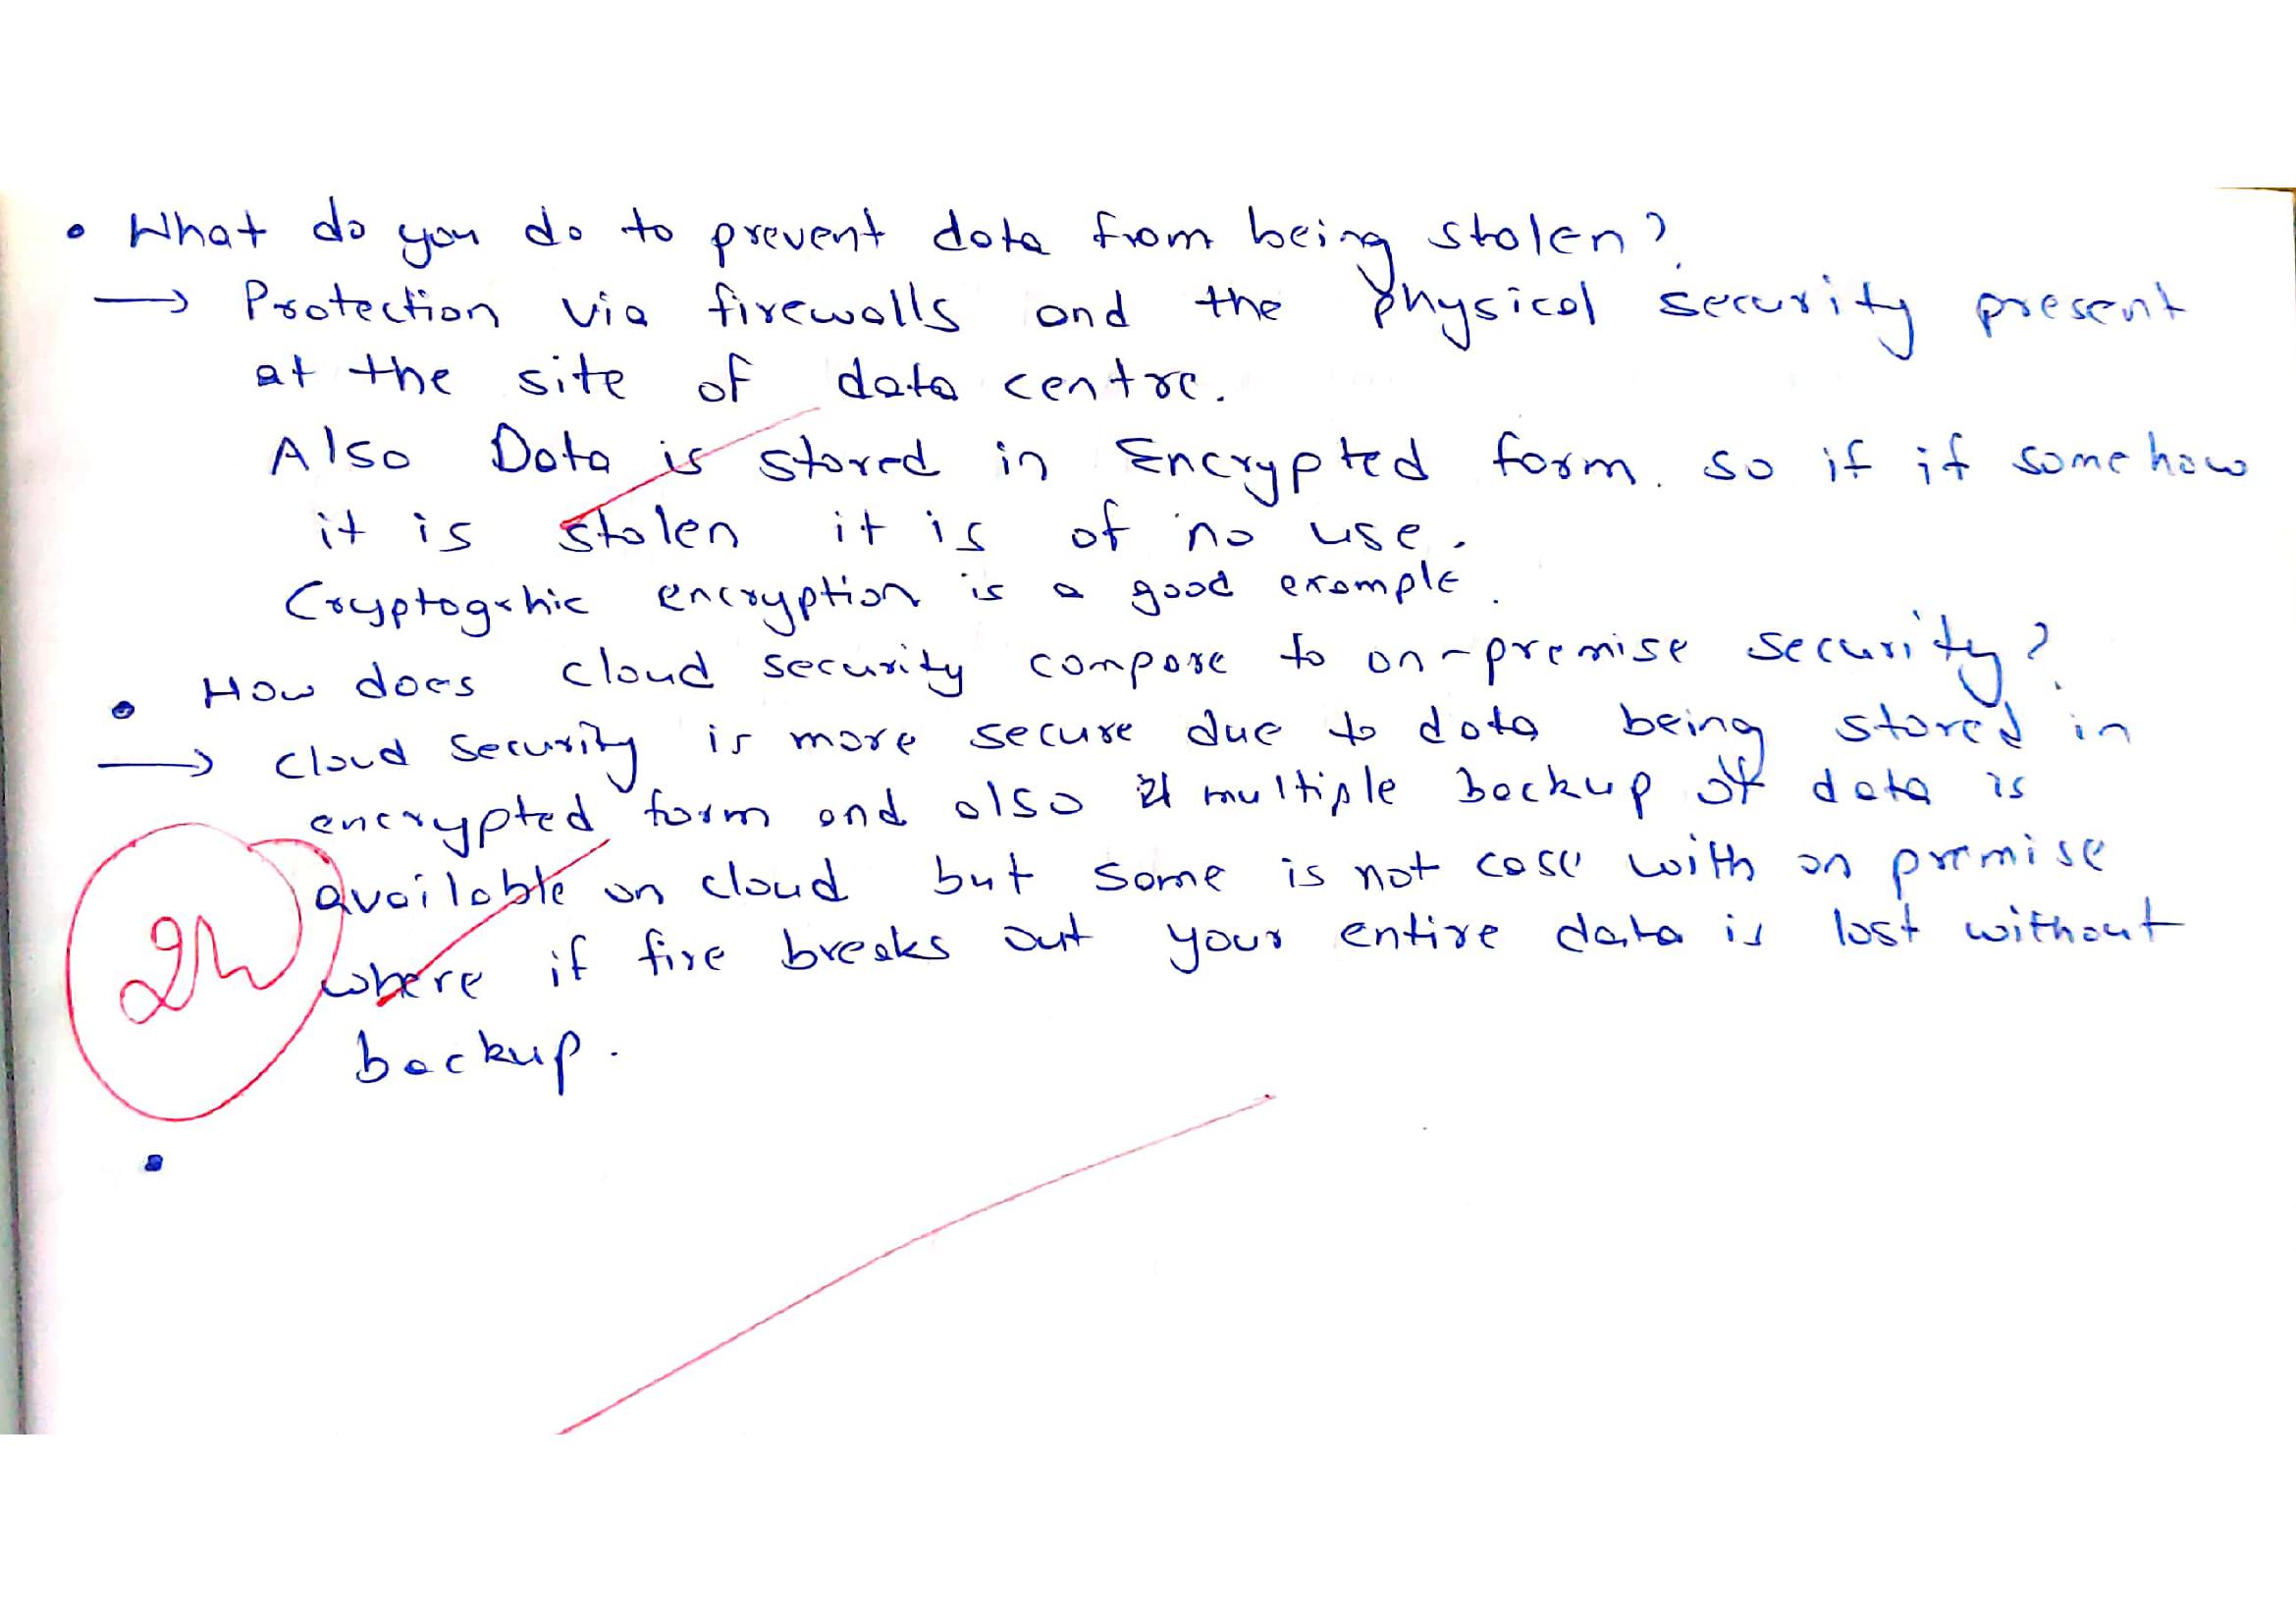 • What do you do to prevent data from being stolen?
→ Protection via firewalls and the Physical security present
at the site of data centre.
Also Data is stored in Encrypted form. so if if somehow
it is stolen it is of no use.
Cryptogrhic encryption is a good example.
• How does cloud security compare to on-premise security?
→ Cloud security is more secure due to data being stored in
encrypted form and also multiple backup of data is
available on cloud but same is not case with on premise
where if fire breaks out your entire data is lost without
backup.
•